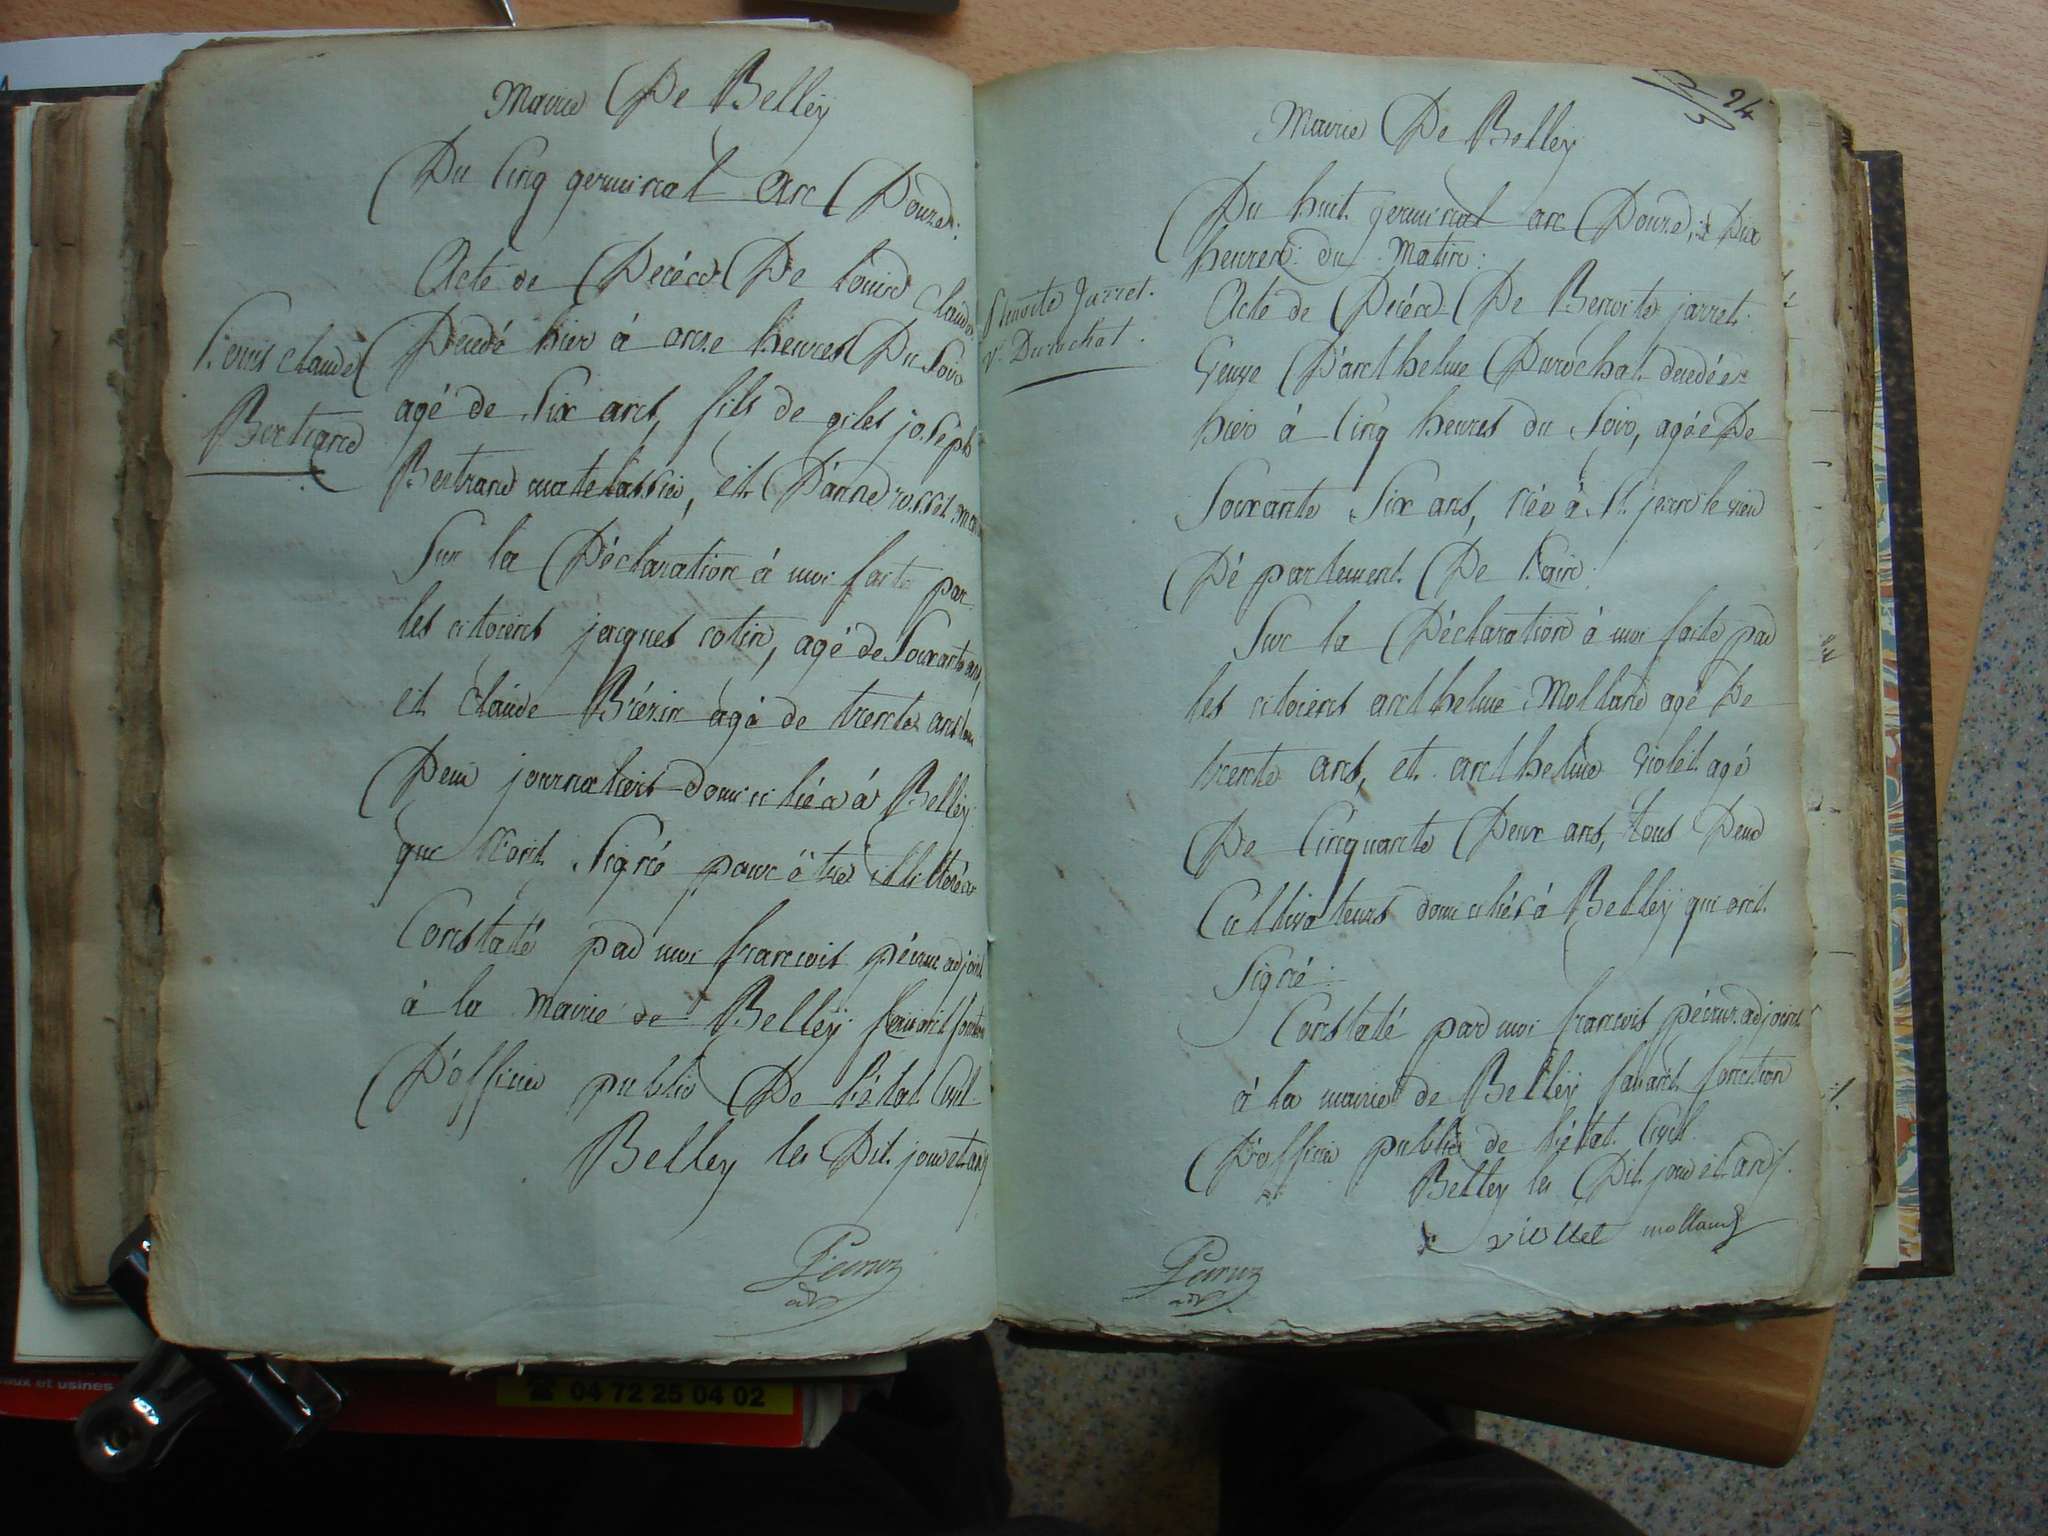 Mairie De Belley
Du Cinq germinal an Douze.
Acte de Décéa De Louis Claude
Décédé hier à onze heures Du Soir
agé de Six ans, fils de giles joseph
Bertrand matelassier, et D'anne rosset
Sur la Déclaration à moi faite par
les citoiens jacques cotin, agé de Soixante ans,
et claude Brézin agé de trente ans tous
Deux journaliers domiciliés à Belley
que n'ont Signé pour être illiterés
Constaté par moi francois pécruz adjoint
à la Mairie de Belley faisant fonction
D'officier public De l'état Civil
Belley les Dit jour et an
Pécruz
adt
Louis Claude
Bertrand
94
Mairie De Belley
Du huit germinal an Douze, à Dix
heures du Matin.
Acte de Décéa De Benoite jarret
Veuve D'anthelme Durochat décédée
hier à Cinq heures du Soir, agée De
Soixante Six ans, née à St. jean le vieu
Département De l'ain
Sur la Déclaration à moi faite par
les citoiens anthelme Molland agé De
trente ans, et anthelme violet agé
De Cinquante Deux ans, tous Deux
Cultivateurs domiciliés à Belley qui ont
Signé.
Constaté par moi francois pécruz adjoint
à la mairie de Belley faisant fonction
D'officier public de l'état Civil
Belley les Dit jour et an
viollet molland
Pécruz
adt
Benoite Jarret.
Ve. Durochat.
aux et usines
☎ 04 72 25 04 02